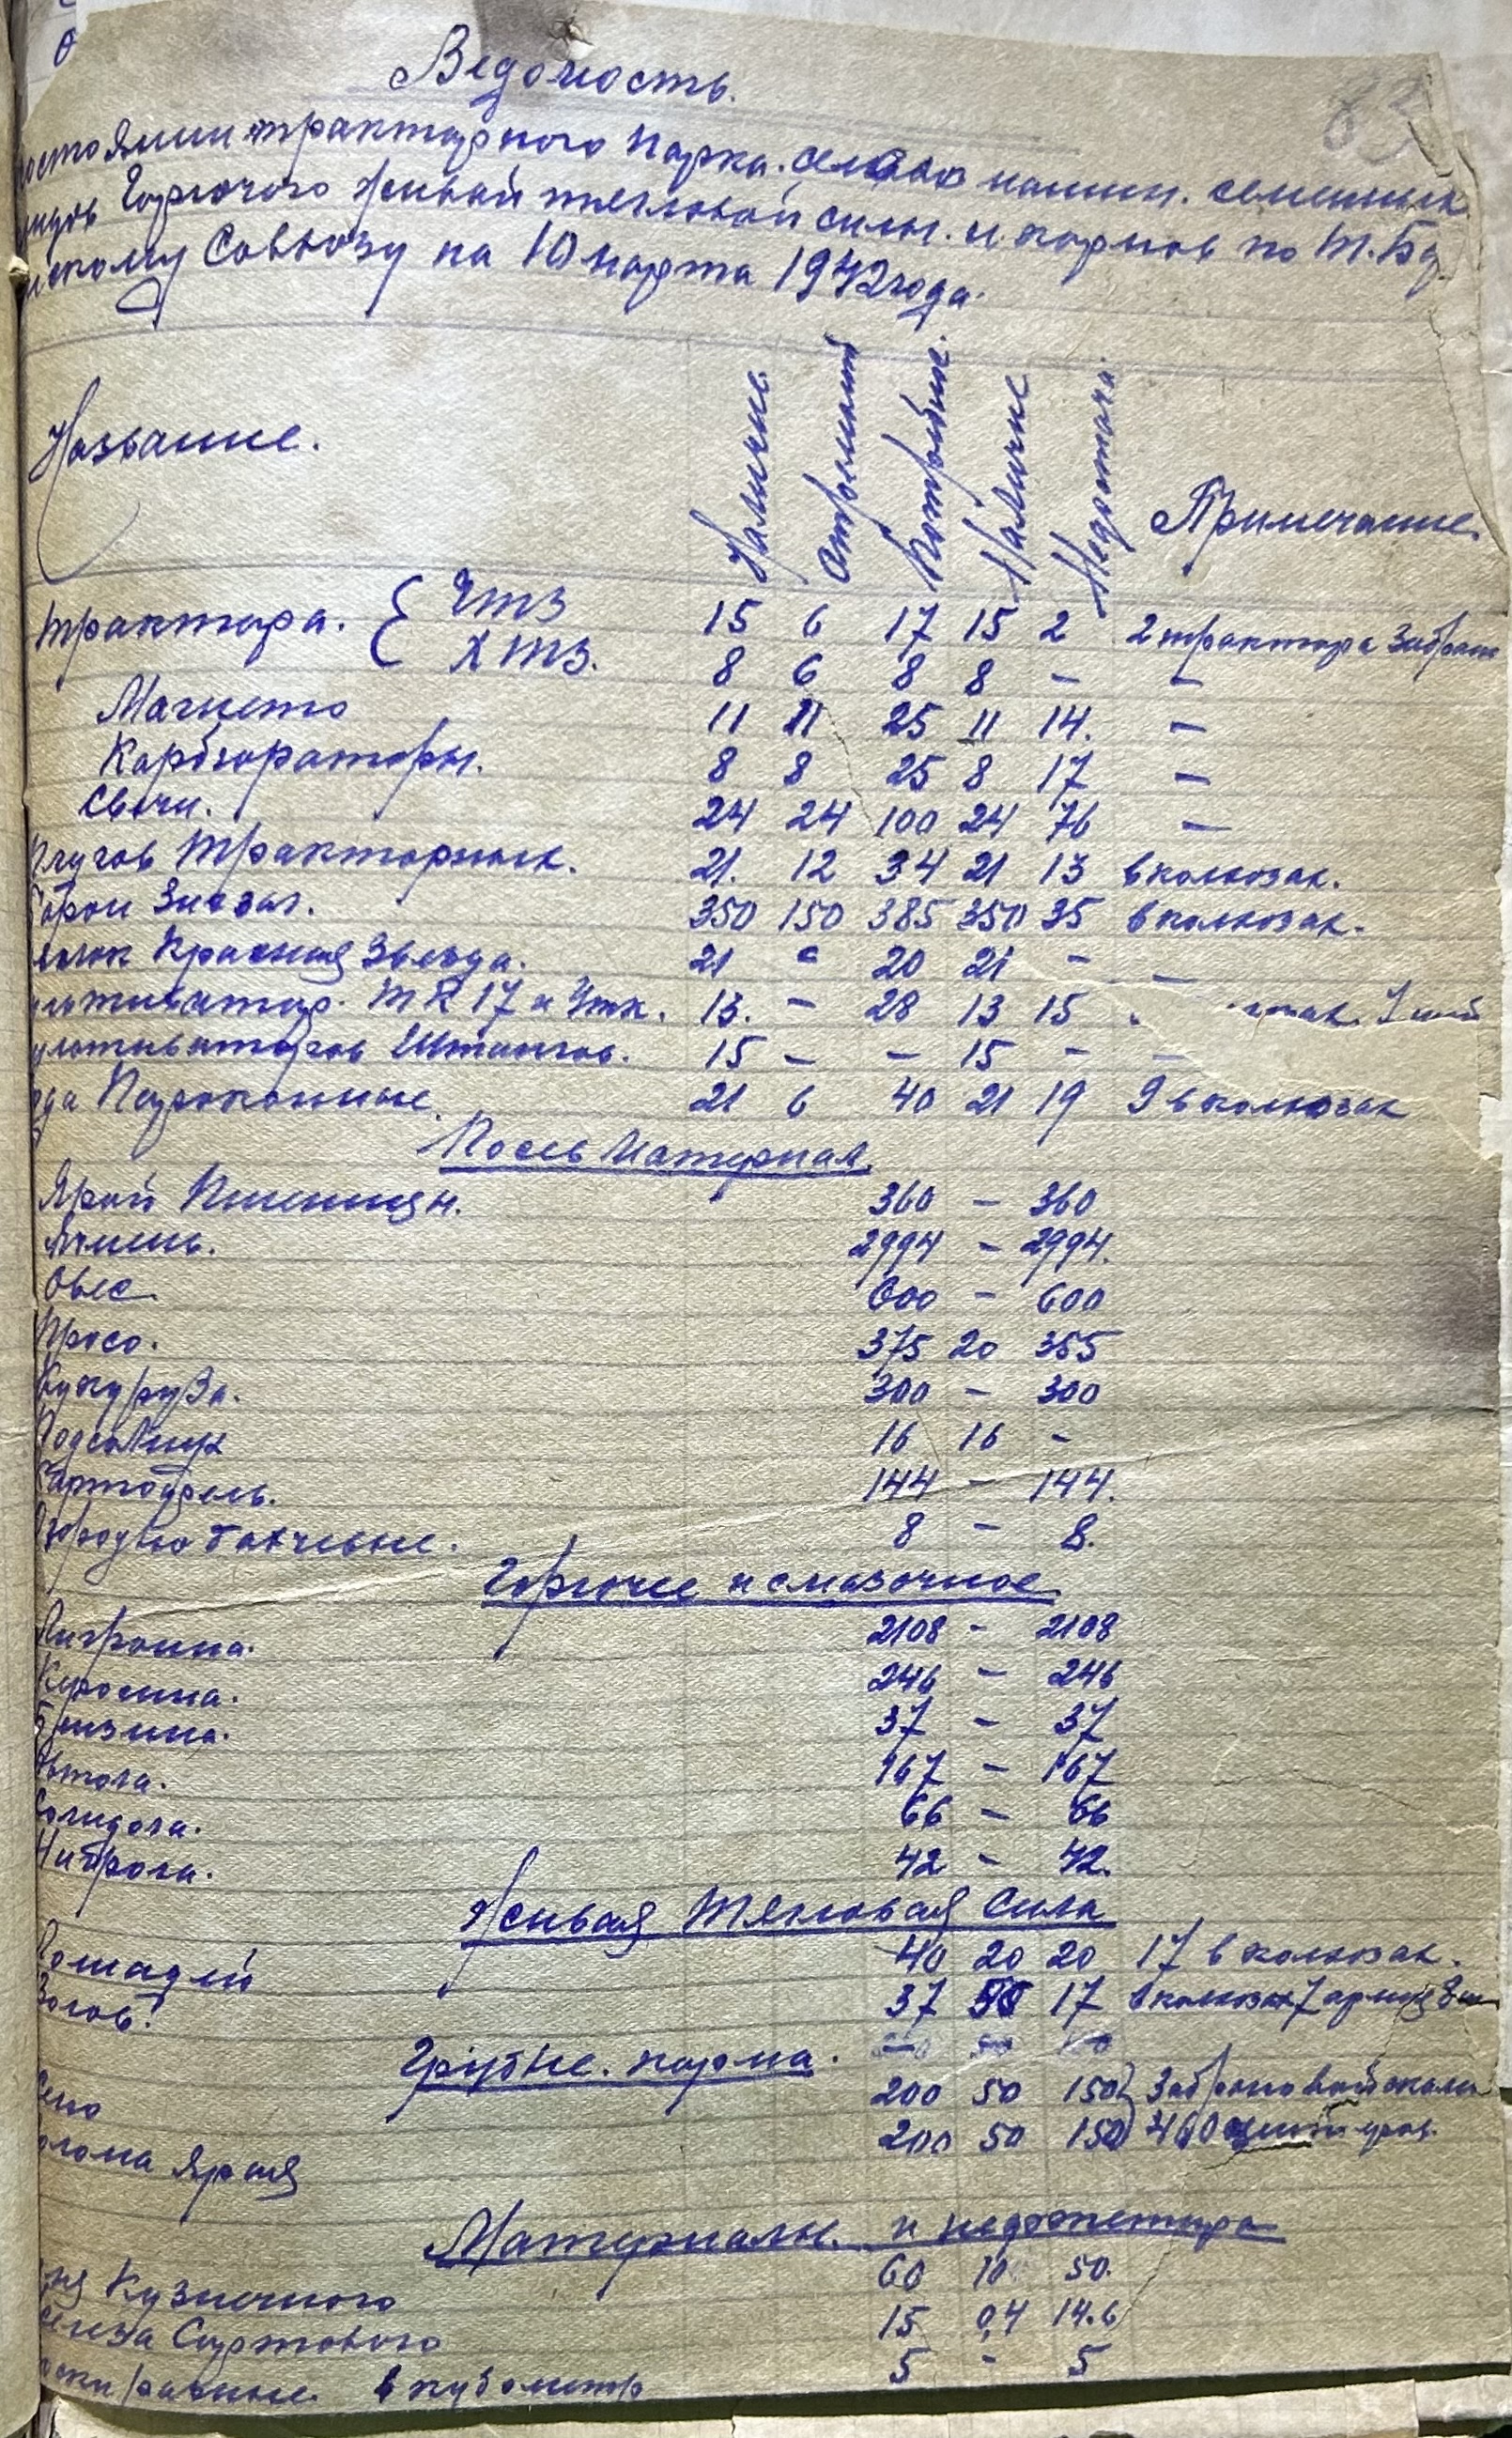 Ведомость.
83
состоянии тракторного парка. сельхо машин. семенных
Горючого живой тягловой силы. и кормов по Т.Бу
скому Совхозу на 10 марта 1942 года.
Название. Наличие. Отремонт Потребние. Наличие Недостача. Примечание.
трактора. { ЧТЗ 15 6 17 15 2 2 трактора забрали
ХТЗ. 8 6 8 8 – –
Магнето 11 11 25 11 14. –
Карбзораторы. 8 8 25 8 17 –
Свечи. 24 24 100 24 76 –
Плугов Тракторных. 21. 12 34 21 13 в колхозах.
Борон Зигзаг. 350 150 385 350 35 в колхозах.
Красная Звезда. 21 20 21 – –
ультиватор. ТК 17 и Утк. 13. – 28 13 15
ультиваторов Штангов. 15 – – 15 – –
Пароконные. 21 6 40 21 19 9 в колхозах
Посев Материал.
Ярой Пшеницы. 360 – 360
Ячмень. 2994 – 2994.
Овес. 600 – 600
Просо. 375 20 355
Кукуруза. 300 – 300
Подсолнух 16 16 –
Картофель. 144 – 144.
Огородно бахчевые. 8 – 8.
Горючее и смазочное.
Лигроина. 2108 – 2108
Керосина. 246 – 246
Бензина. 37 – 37
Автола. 167 – 167
Солидола. 66 – 66
Нигрола. 42 – 42.
Живая Тягловая Сила
Лошадей 40 20 20 17 в колхозах.
Волов. 37 17 в колхозах 7
Грубые. корма.
Сено 200 50 150 } Забрано войсками
олома Ярая 200 50 150 } 460 центнеров.
Материалы. и
Кузнечного 60 10 50.
Сортового 15 0,4 14.6
разные. в кубометр 5 - 5